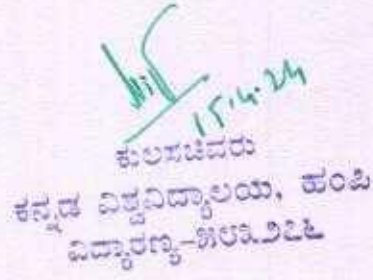 15.4.24
ಕುಲಸಚಿವರು
ಕನ್ನಡ ವಿಶ್ವವಿದ್ಯಾಲಯ, ಹಂಪಿ
ವಿದ್ಯಾರಣ್ಯ-೫೮೩೨೭೬